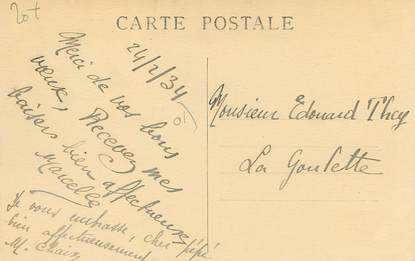 20+
CARTE POSTALE
24/2/34
Merci de vos bons
vœux, Recevez mes
baisers bien affectueux
Marcelle
Je vous embrasse, cher pépé
bien affectueusement.
M.
Monsieur Edouard
La Goulette